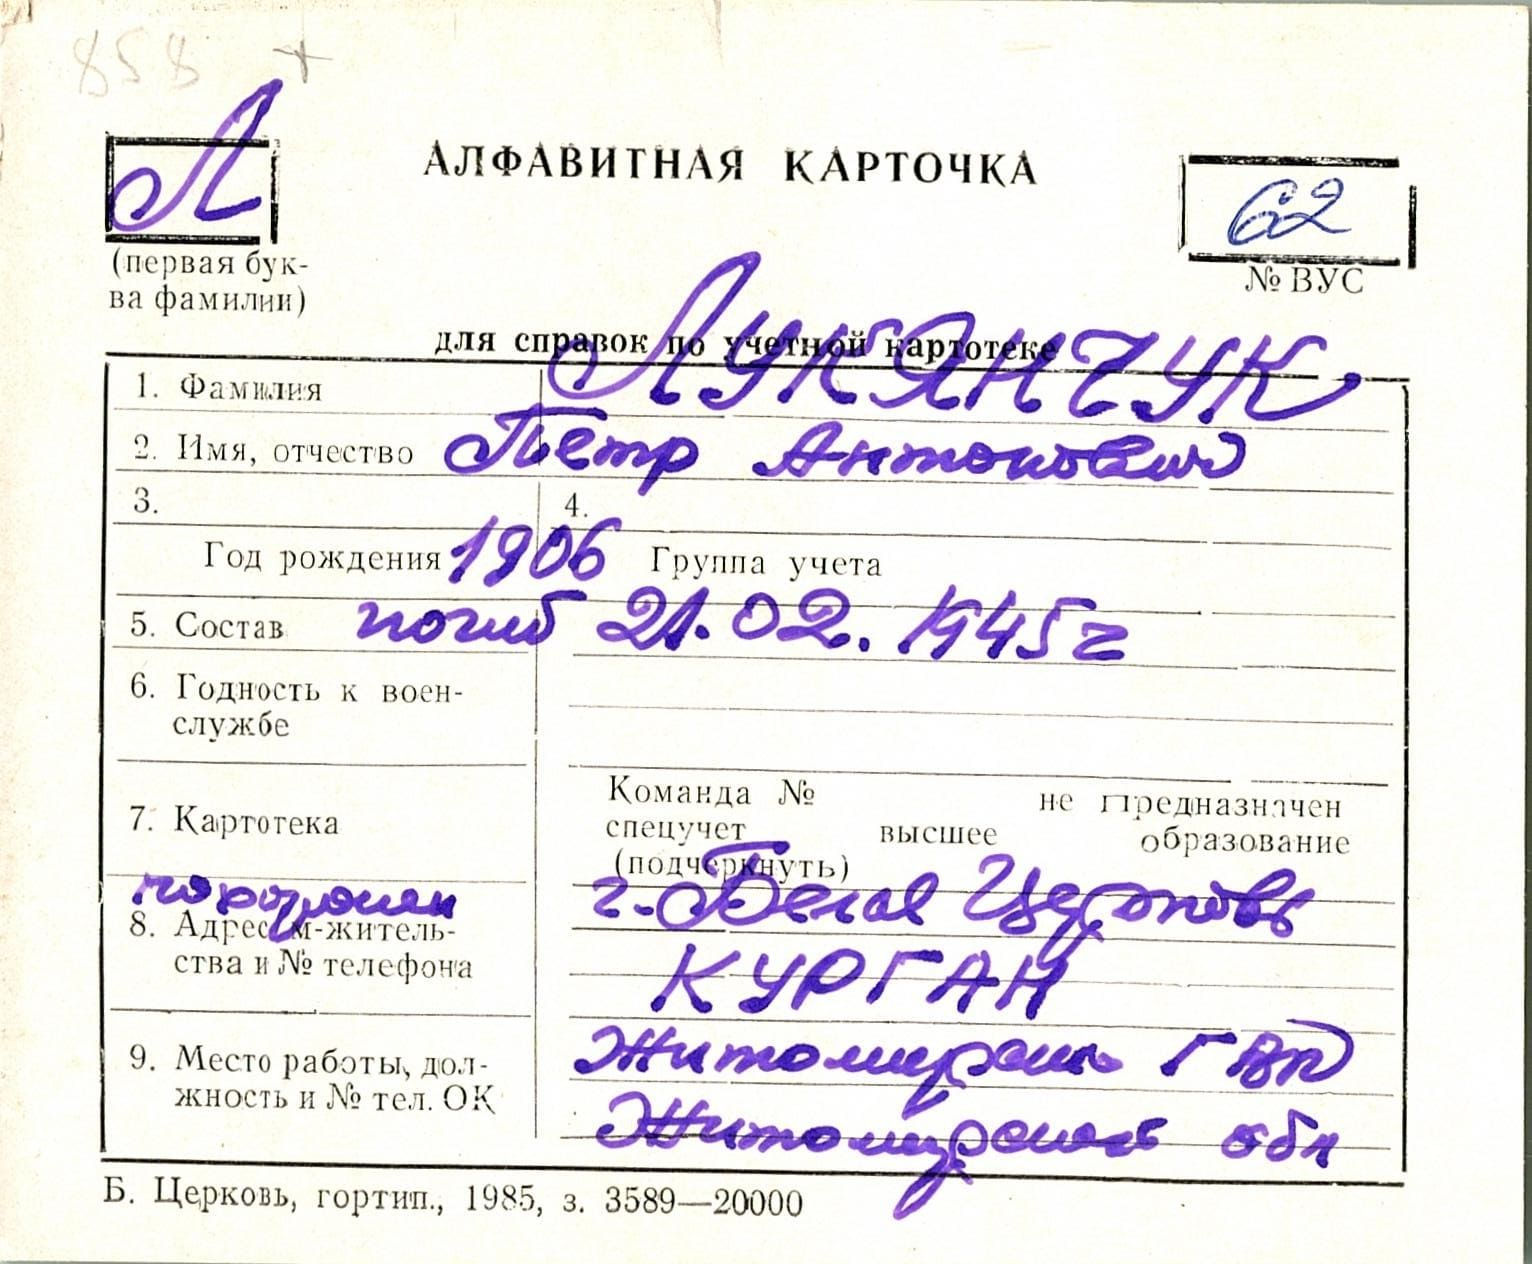 858 +
Л
АЛФАВИТНАЯ КАРТОЧКА
62
(первая бук-
ва фамилии)
№ ВУС
для справок по учетной картотеке
1. Фамилия ЛУКЯНЧУК
2. Имя, отчество Петр Антонович
3. 4.
Год рождения 1906 Группа учета
5. Состав погиб 21.02.1945г
6. Годность к воен-
службе
Команда № не предназначен
7. Картотека
спецучет высшее образование
(подчеркнуть)
похоронен г. Белая Церковь
8. Адрес м-житель-
ства и № телефона
КУРГАН
9. Место работы, дол-
жность и № тел. ОК
Житомирский ГВК
Житомирской обл
Б. Церковь, гортип., 1985, з. 3589—20000